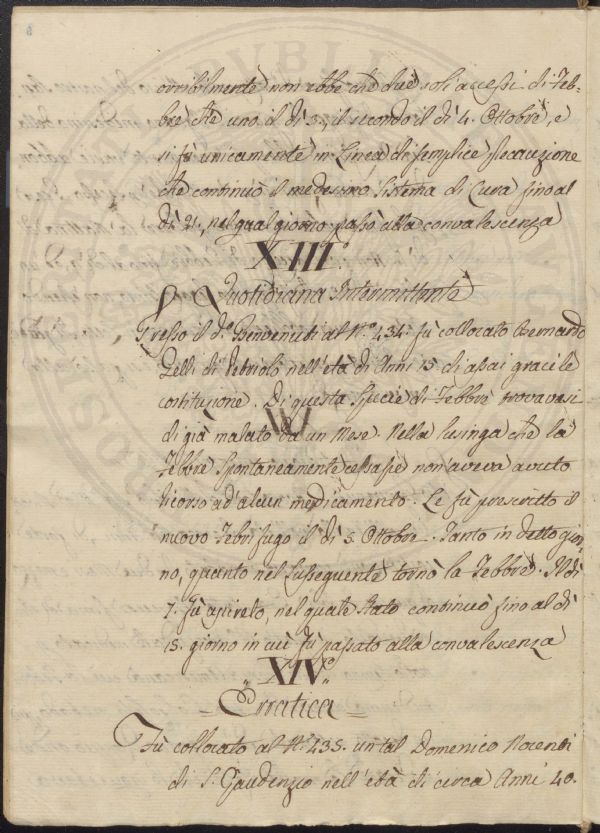 orribilmente non ebbe che due soli accessi di Feb-
bre che uno il dì 3., il secondo il dì 4. Ottobre, e
si fù unicamente in Linea di semplice precauzione
che continuò il medesimo Sistema di Cura fino al
dì 21., nel qual giorno passò alla convalescenza
XIII.°
Quotidiana Intermittente
Presso il d.° Benvenuti al N.° 434. fù collocato Bernardo
Lelli di nell'età di Anni 15 di assai gracile
costituzione. Di questa Specie di Febbre trovavasi
di già malato da un Mese. Nella lusinga che la
Febbre Spontaneamente cessasse non aveva avuto
ricorso ad alcun medicamento. Le fù prescritto il
nuovo Febrifugo il dì 5. Ottobre. Tanto in detto gior-
no, quanto nel susseguente tornò la Febbre. Il dì
7. fù apireto, nel quale stato continuò fino al dì
15. giorno in cui fù passato alla convalescenza
XIV.°
Erratica
Fù collocato al N.° 435. un tal Domenico
di S. Gaudenzio nell'età di circa Anni 40.